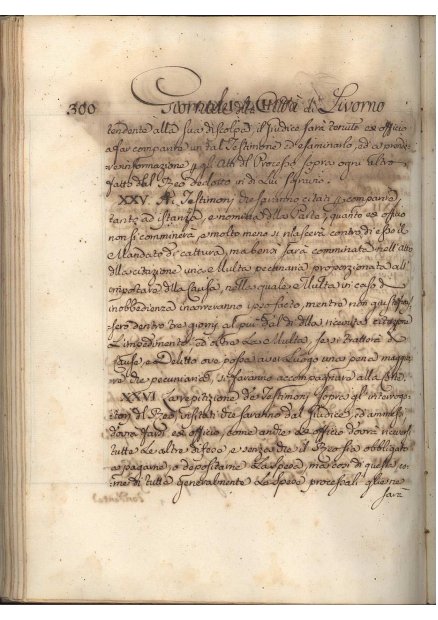 300 Giornale della Città di Livorno
tendente alla sua discolpa, il Giudice sarà tenuto ex officio
a far comparire un tal Testimone ed esaminarlo, ed a prende
re informazione per gli Atti del Processo sopra ogni altro
fatto dal Reo dedotto in di Lui favore.
XXV. Ai Testimonj che saranno citati per comparire
tanto ad istanza, e nomina della Parte, quanto ex officio
non si comminerà, e molto meno si rilascerà contro di essi il
Mandato di cattura, ma bensì sarà comminata nell' atto
della citazione una Multa pecuniaria proporzionata all'
importare della Causa, nella quale Multa in caso d'
inobbedienza incorreranno ipso facto, mentre non giustificas
sero dentro tre giorni al più dal dì della ricevuta citazione
L'impedimento, ed oltre La Multa, se si tratterà di
Cause, e Delitto ove possa aver Luogo una pena maggio
re che pecuniaria, si faranno accompagnare alla
XXVI. La repitizione de' Testimonj sopra gl' interroga
torj del Reo, instati che saranno dal Giudice, ed ammessi
dovrà farsi ex officio, come anche ex officio dovrà ricever
tutte Le altre difese e senza che il Reo sia obbligato
a pagarne, o depositarne La Spesa, ma così di questa, co
me di tutte generalmente Le Spese processali
sarà